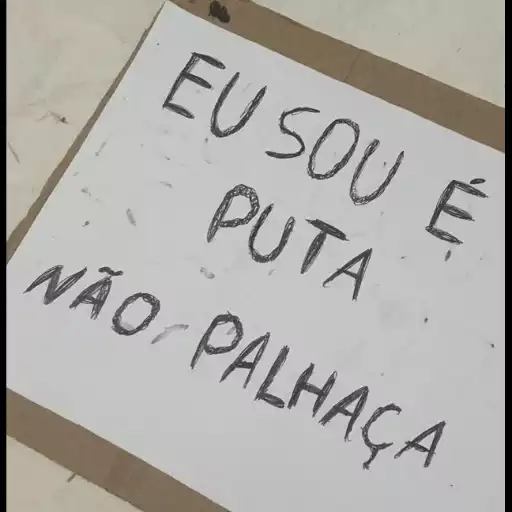 EU SOU É
PUTA
NÃO PALHAÇA